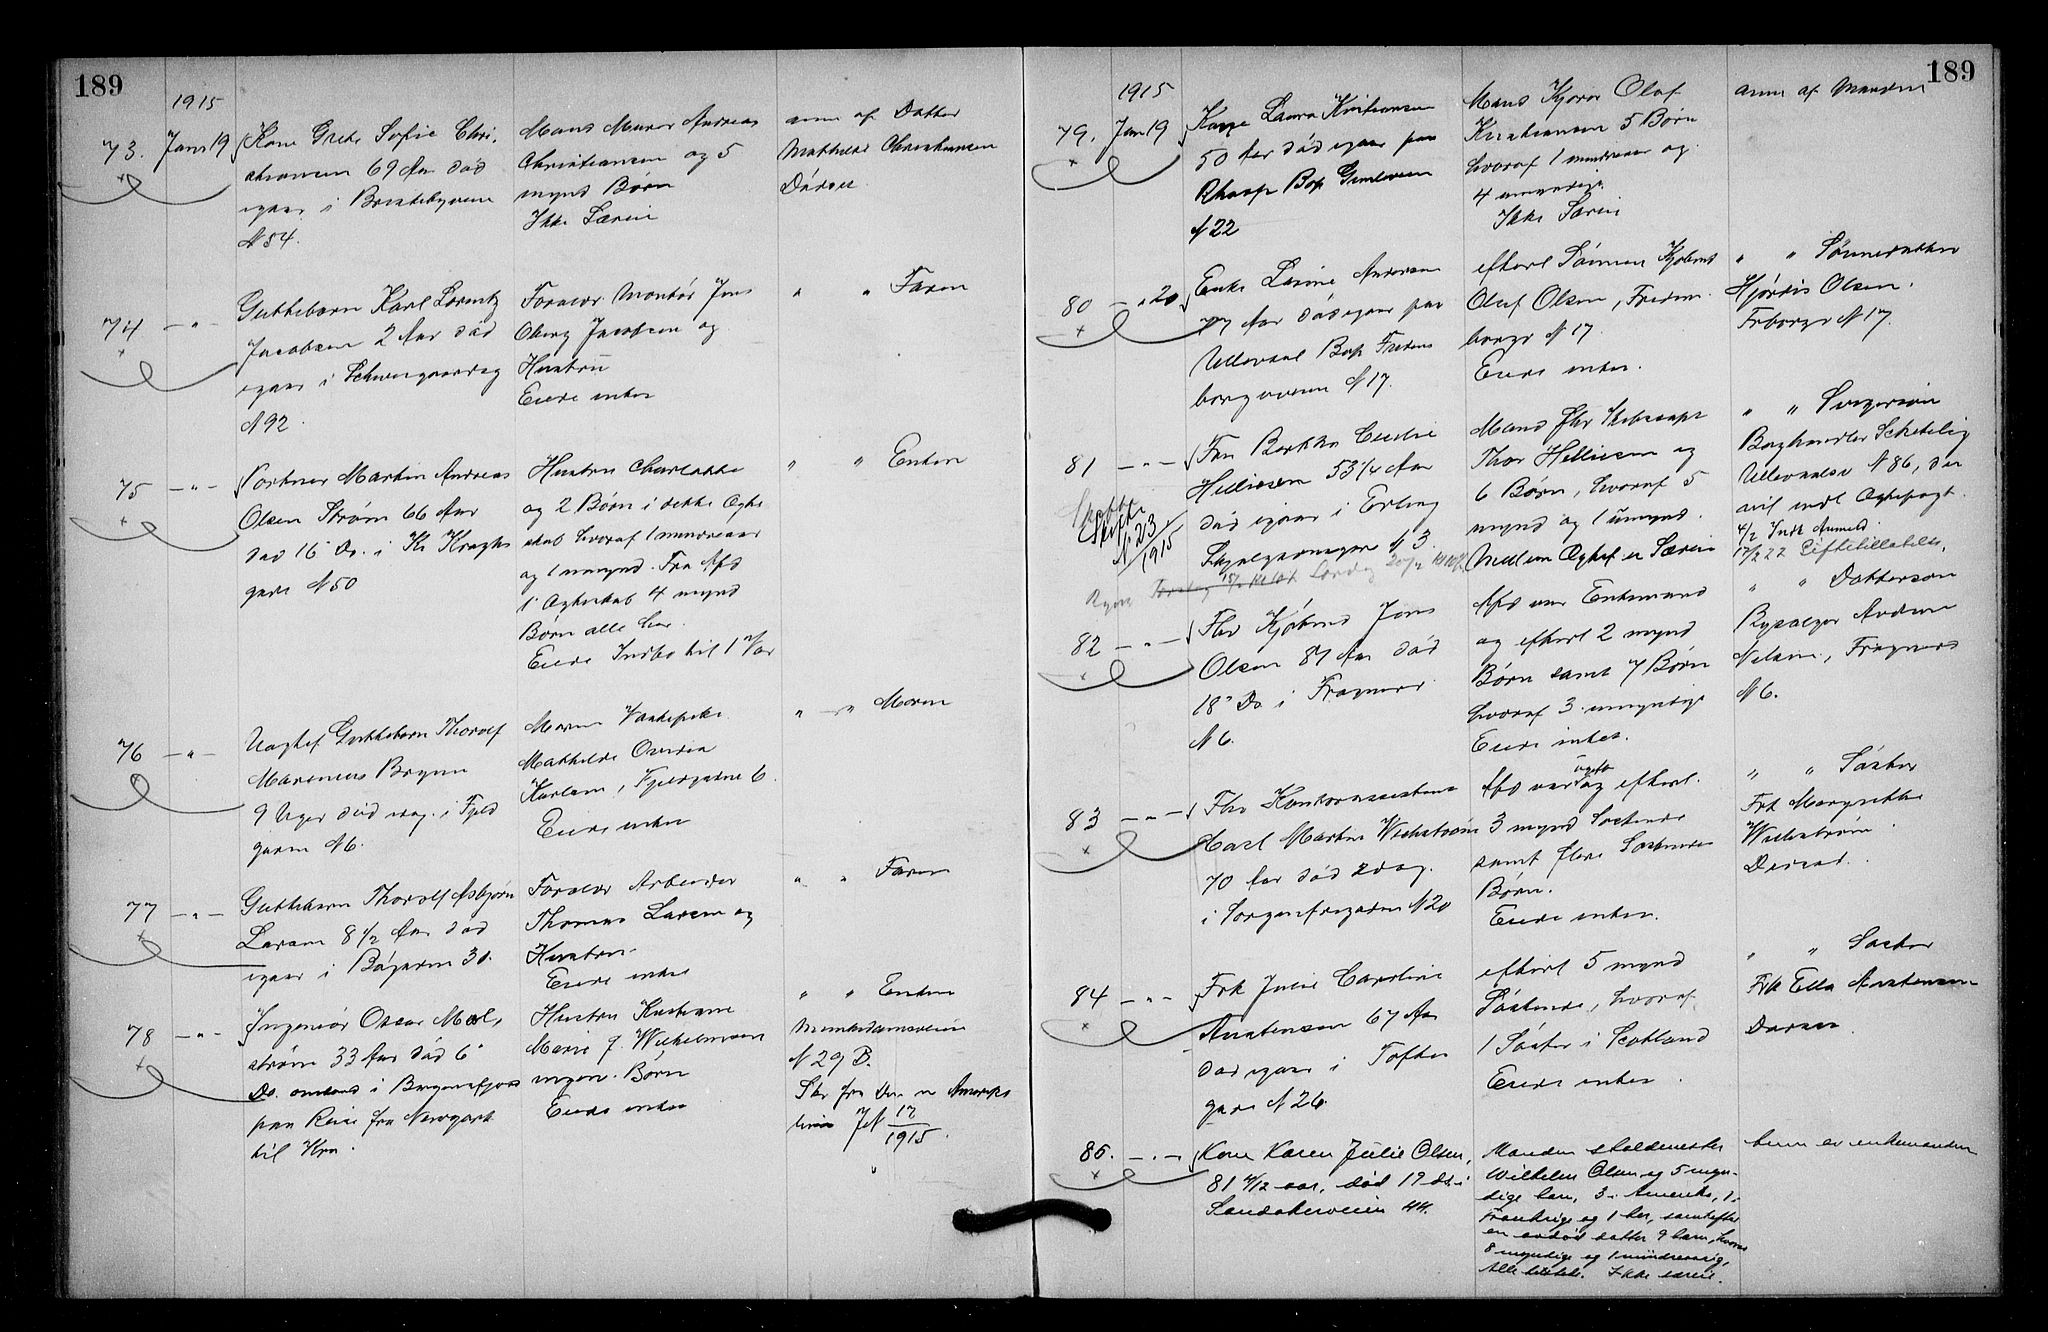 189
1915
73. Jan 19 Kone Grete Sofie Chri-
stiansen 69 Aar død
igaar i
N 54.
Mand Murer Andreas
Christiansen og 5
mynd Børn
Ikke Særeie
anm af Datter
Mathilde Christiansen
74 — " — Guttebarn Karl Lorentz
Jacobsen 2 Aar død
igaar i Schweigaardsg
N 92.
Forældr. Montør Jens
Oberg Jacobsen og
Hustru
Eiede intet
" " Faren
75 — " — Portner Martin Andreas
Olsen Strøm 66 Aar
død 16 Ds. i Kr Kroghs
gade N 50
Hustru Charlotte
og 2 Børn i dette Ægte
skab hvoraf 1 mindreaar
og 1 umynd. Fra Afd
1 Ægteskab 4 mynd
Børn alle her.
Eiede Indbo til
" " Enken
76 — " — Uægtef Guttebarn Thorolf
Marenius
9 Uger død idag. i Fjeld
gaden N 6.
Moren
Mathilde
Karlsen, Fjeldgaden 6.
Eiede intet
" — " Moren
77 — " — Guttebarn Thorolf Asbjørn
Larsen 8 1/2 Aar død
igaar i Bøgaden 30.
Forældr Arbeider
Thomas Larsen og
Hustru.
Eiede intet
" " Faren
78 — " — Ingeniør Oscar
strøm 33 Aar død 6'
Ds. ombord i Bergensfjord
paa Reise fra Newyork
til Kra.
Hustru
Marie f. Wilhelmsen
ingen Børn
Eiede intet
" " Enken
N 29 B.
Skr fra Den n Amerika
linie JN 17/1915.
189
1915
79. Jan 19 Kone Laura Kristiansen
50 Aar død igaar paa
N 22
Mand Kjører Olaf
Kristiansen 5 Børn
hvoraf 1 mindreaar og
4 umyndige.
Ikke Særeie
anm af Manden
80 — " 20 Enke Lovise Andersen
77 Aar død igaar paa
Ullevaal Bop Fredens
borgveien N 17.
efterl Sønnen Kjøbmd
Olaf Olsen, Fredens
borgv N 17
Eiede intet.
" " Sønnedatter
Hjørdis Olsen.
Frborgv N 17.
81 — " — Fru Berthe Cecilie
Helliesen 53 3/4 Aar
død igaar i Erling
Skjalgsonsgade N 3
Skifte
N 23/1915
Mand Fhv Skibscapt
Thor Helliesen og
6 Børn, hvoraf 5
mynd og 1 umynd.
Mellem Ægtef er Særeie
" " Svigersøn
Boghandler Schetelig
Ullevaalsv N 86, der
vil indl Ægtepagt.
4/2 Indk Anmeld.
82 — " — Fhv Kjøbmd Jens
Olsen 87 Aar død
18' Ds i Frognerv
N 6.
Afd var Enkemand
og efterl 2 mynd
Børn samt 7 Børn
hvoraf 3 umyndige
Eiede intet.
" " Dattersøn
Nilsen, Frognerv
N 6.
83 — " — Fhv Kontorassistent
Carl Martin Wickstrøm
70 Aar død 2 dag.
i Sorgenfrigaden N 20
Afd var ugift og efterl.
3 mynd Søskende
samt flere Søskendes
Børn.
Eiede intet.
" " Søster
Frk Margrethe
Wickstrøm.
84 — " — Frk Julie Caroline
Arstensen 67 Aar
død igaar i Toftes
gade N 26.
efterl 5 mynd
Søskende, hvoraf
1 Søster i Scotland
Eiede intet.
" " Søster
Frk Ella Arstensen
85. — " — Kone Karen Julie Olsen,
81 4/12 aar, død 19 ds. i
Sandakerveien 44.
Manden
Wilhelm Olsen og 5 myn-
dige barn, 3 i Amerika, 1 i
Frankrige og 1 her, samt efter
en avdød datter 9 barn, hvorav
8 myndige og 1 mindreaarig,
Ikke særeie.
enkemanden